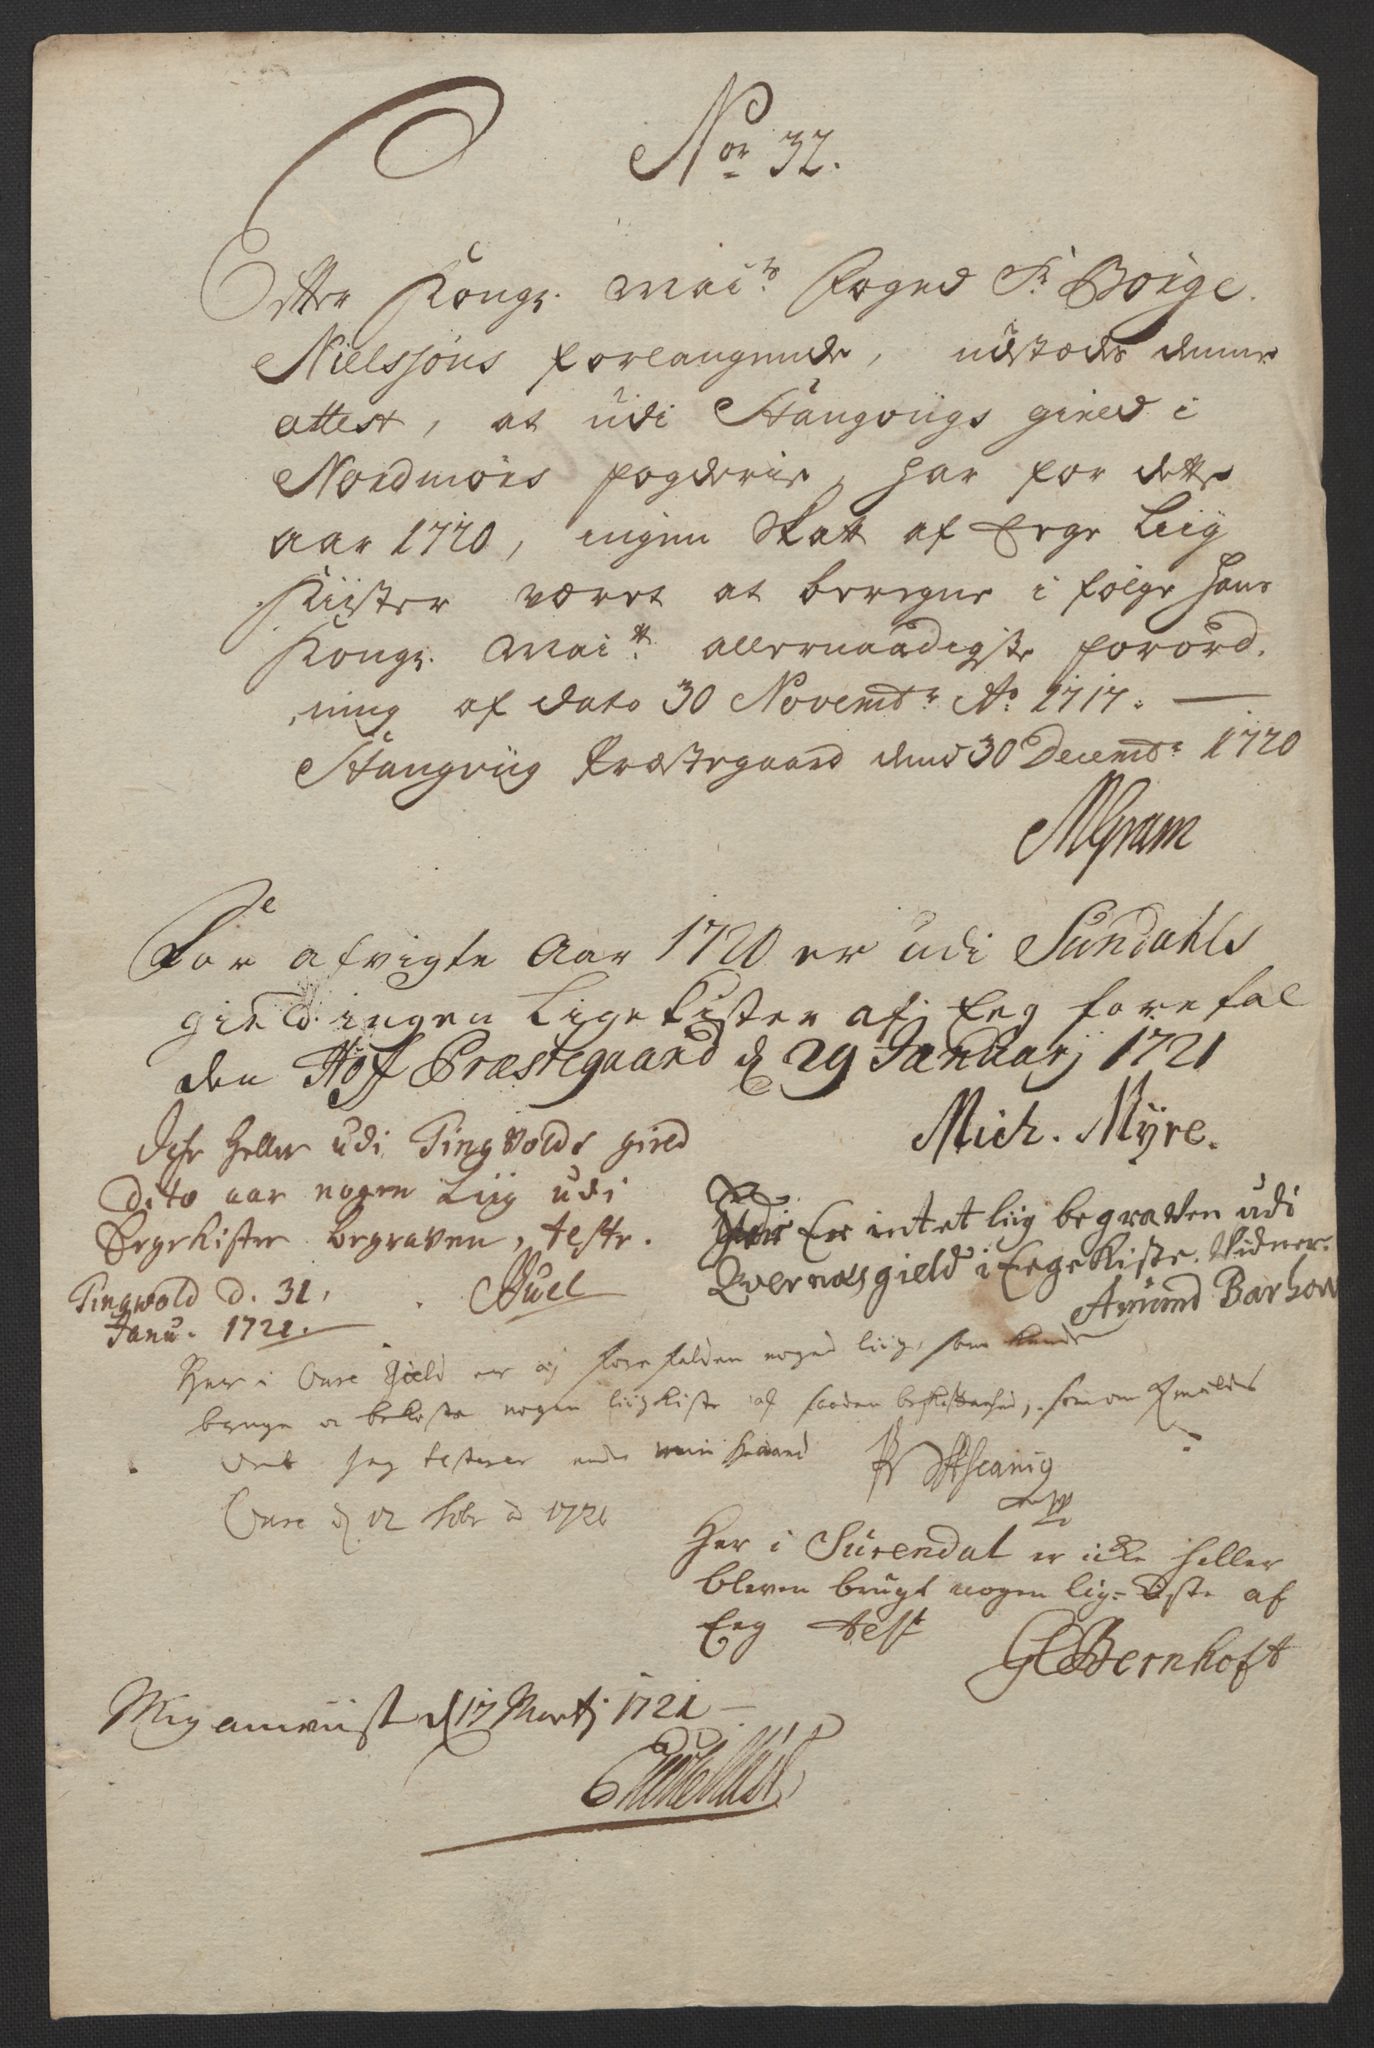 Nor 32.
Efter Kongl. Mai:ts Foged Sr. Börge
Nielssøns forlangende, udstædes denne
attest, at udi Stangviigs gield i
Nordmörs fogderie, har for dette
aar 1720, ingen Skatt af Eege Liig
Kiister været at beregne i følge Hans
Kongl. Mai:tt allernaadigste forord,
ning af dato 30 Novembr Ao 1717.
Stangviig Præstegaard dend 30 Decembr 1720
MGram
For afvigte Aar 1720 er udi Sundahls
gield ingen Ligekister af Eeg forefal
den Hoff Præstegaard d 29 Januarij 1721
Mich. Myre.
Icke heller udi Tingvolds gield
dito aar nogen Liig udi
Eegekister begraven, teste.
Tingwold d. 31.
Janu. 1721.
Buel
Er intet liig begraven udi
Qvernæs gield i Eegekiste. Vidner.
Amund Barhow
Her i Øure Gield er ej forefalden noget liig, som kunde
bruge oc bekoste nogen liigkiste af saadan beskaffenhed, som om meldes
det jeg testerer under min Haand
Øure d 12 Febr 1721
Her i Surendal er icke heller
bleven brugt nogen lig-kiste af
Eeg test
GBernhoft
Mig anviist d 17 Martj 1721